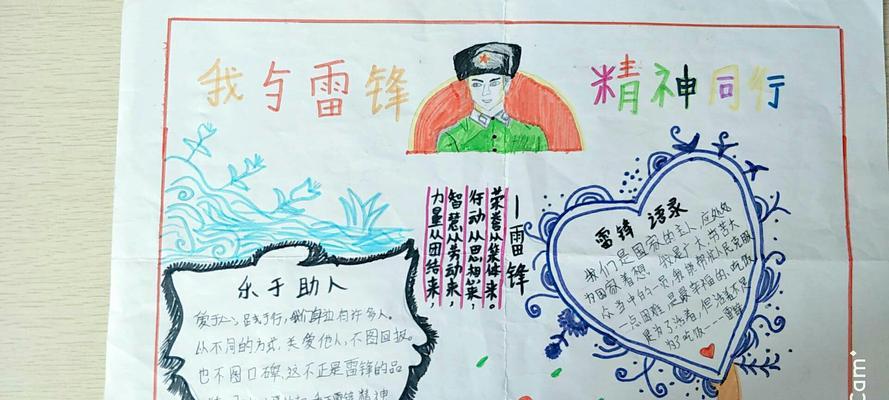 我与雷锋 精神同行
力量从团结来,
智慧从劳动来,
行动从思想来,
荣誉从集体来。
—雷锋
雷锋语录
我们是国家的主人,应处处
为国家着想,我是广大劳苦大
众当中的一员我能帮助人民克服
一点困难是最幸福的,吃饭
是为了活着,但活着不是
为了吃饭---雷锋
乐于助人
爱于心,践于行,身边有许多人。
从不同的方式,关爱他人,不图回报。
也不图口碑,这不正是雷锋的品
雷锋精神
Cam